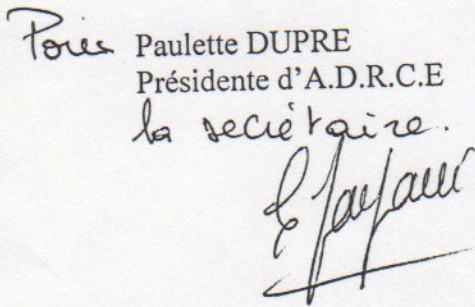 Pour Paulette DUPRE
Présidente d'A.D.R.C.E
la secrétaire.